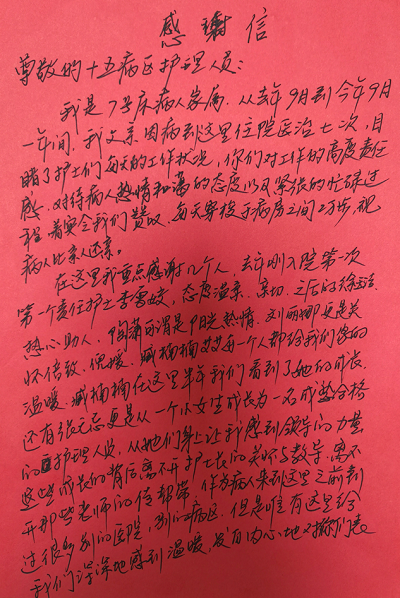 感谢信
尊敬的十五病区护理人员：
我是7号床病人家属，从去年9月到今年9月
一年间，我父亲因病到这里住院医治七次，目
睹了护士们每天的工作状况，你们对工作的高度责任
感，对待病人热情和蔼的态度以及紧张的忙碌过
程，着实令我们赞叹，每天穿梭于病房之间2万步，视
病人比亲人还亲。
在这里我重点感谢几个人，去年刚入院第一次
第一个责任护士李雪姣，态度温柔、亲切，之后的徐
热心助人，陶潇 滑是阳光热情，刘丽娜更是关
怀倍致，便媛、臧楠楠 每一个人都给我们家的
温暖，臧楠楠在这里半年我们看到了她的成长，
还有张 更是从一个小女生成长为一名成熟合格
的护理人员，从她们身上让我感到领导的力量
这些成长的背后离不开护士长的关怀与教导，离不
开那些老师的传帮带，作为病人来到这里之前到
过很多别的医院，别的病区，但是唯有这里给
我们深深地感到温暖，发自内心地对 们表